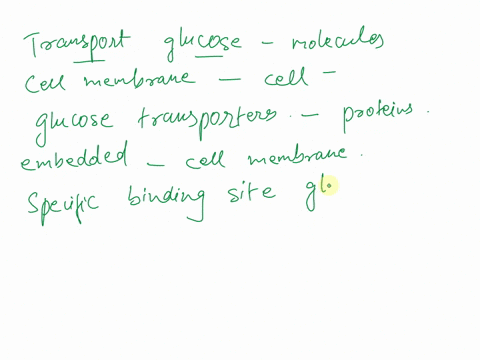 Transport glucose - molecules
Cell membrane - cell -
glucose transporters. - proteins.
embedded - cell membrane.
Specific binding site gl